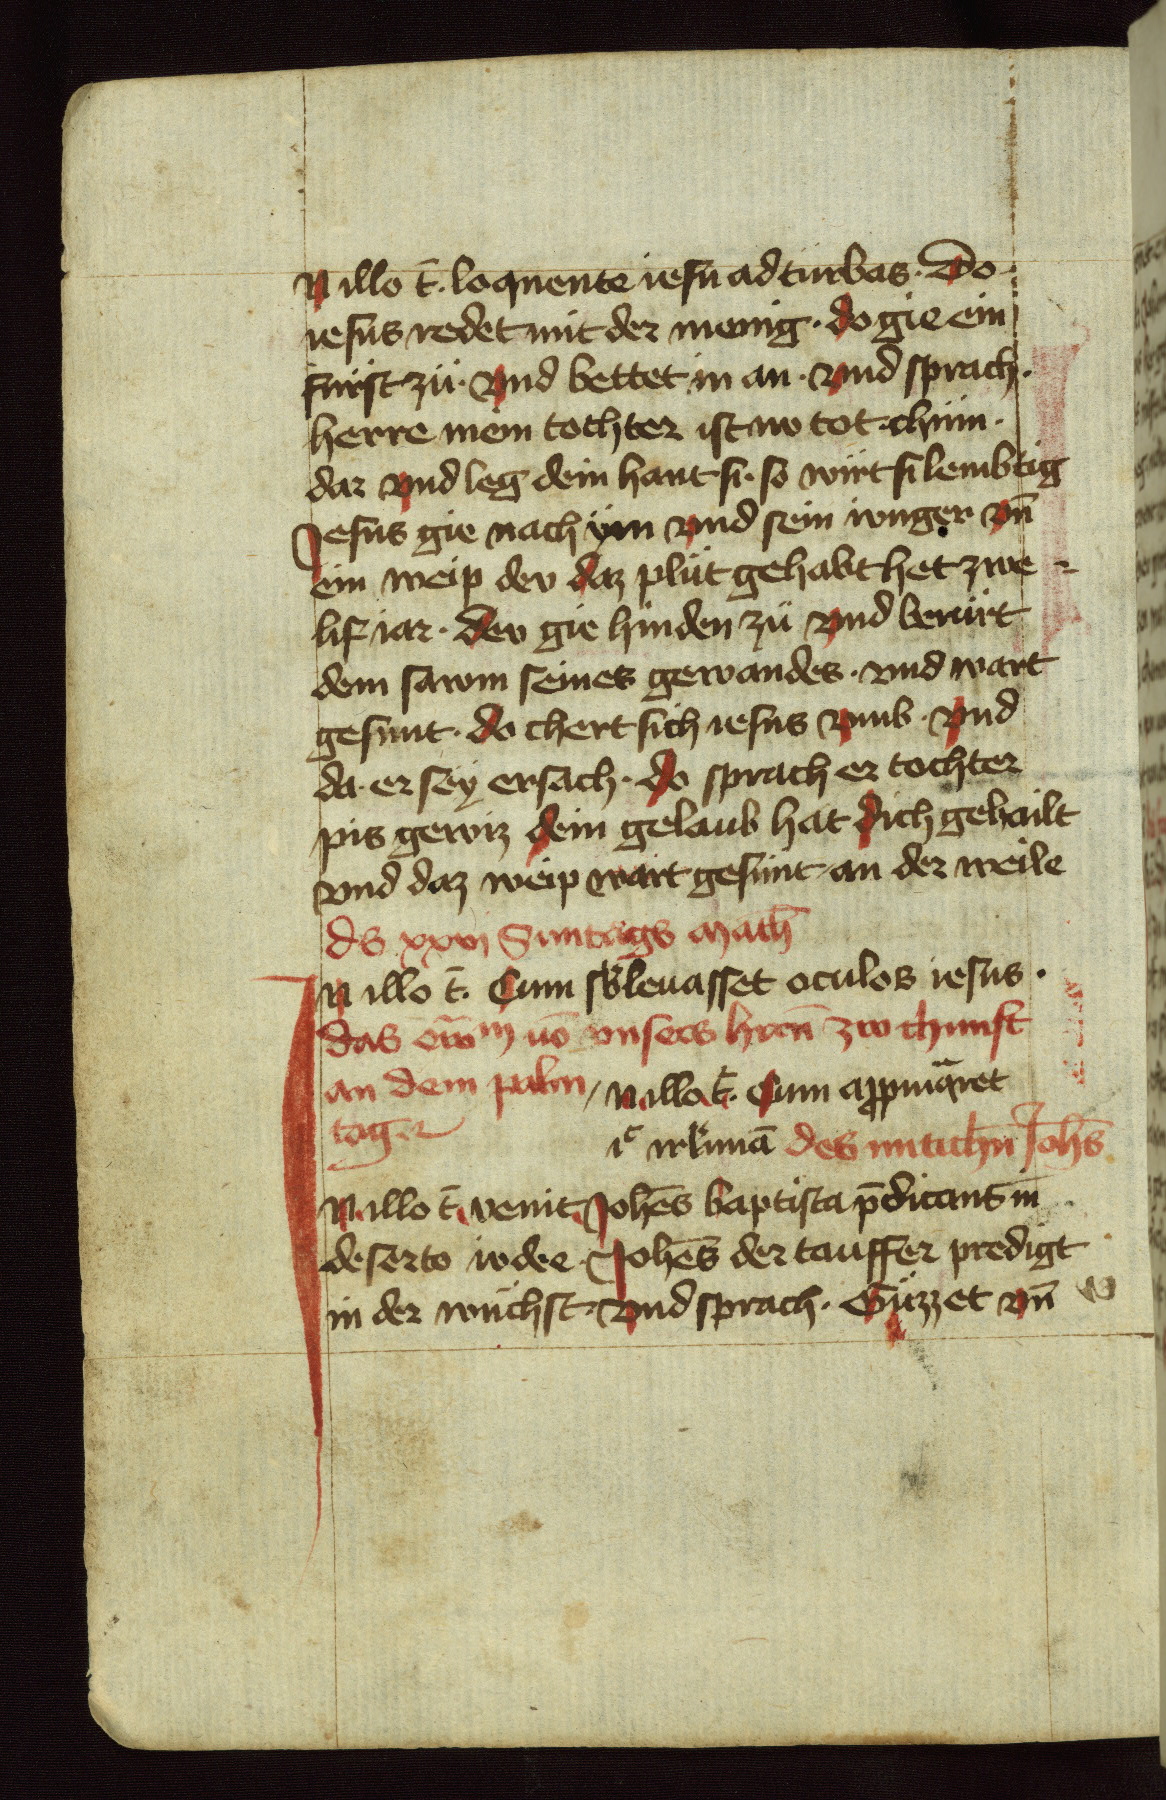 N illo t̄. loquente iesu ad turbas. Do
iesus redet mit der menig. do gie ein
furst zü. vnd bettet in an. vnd sprach.
herre mein tochter ist nv tot. chüm.
dar vnd leg dein hant si. so wirt si lembtig
Jesus gie nach ÿm vnd sein iunger vn̄
ein weip dev daz plüt gehabt het zwe-
lif iar. dev gie hinden zü vnd berürt
dem sawm seines gewandes. vnd wart
gesunt. do chert sich iesus vmb. vnd
da er seÿ ersach. do sprach er tochter
pis gewiz dein gelaub hat dich gehailt
vnd daz weip wart gesunt an der weile
ds xxvi Suntags Math̄
IN illo t̄. Cum sbleuasset oculos iesus.
das vō vnsers hrn̄ zw chunft
an dem palm
tage
N illo t̄. Cum appinq̄ret
des mitichn̄ Joh̄s
N illo t̄. venit Joh̄es baptista p̄dicans in
deserto iudee. Joh̄es der tauffer predigt
in der wuchst. vnd sprach. Büzzet vn̄